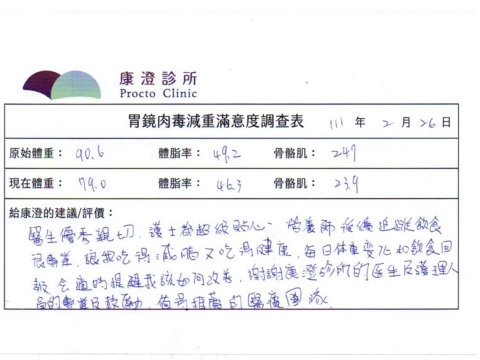 康澄診所
Procto Clinic
胃鏡肉毒減重滿意度調查表 111 年 2 月 26 日
原始體重： 90.6 體脂率： 49.2 骨骼肌： 247
現在體重： 79.0 體脂率： 46.3 骨骼肌： 239
給康澄的建議/評價：
醫生優秀親切、護士姊超級貼心、營養師後續追蹤飲食
很專業，讓我吃得減嗎又吃得健康，每日體重變化和飲食回
報會適時提醒我該如何改善，謝謝康澄診所的醫生及護理人
員的專業及鼓勵，值得推薦的醫療團隊